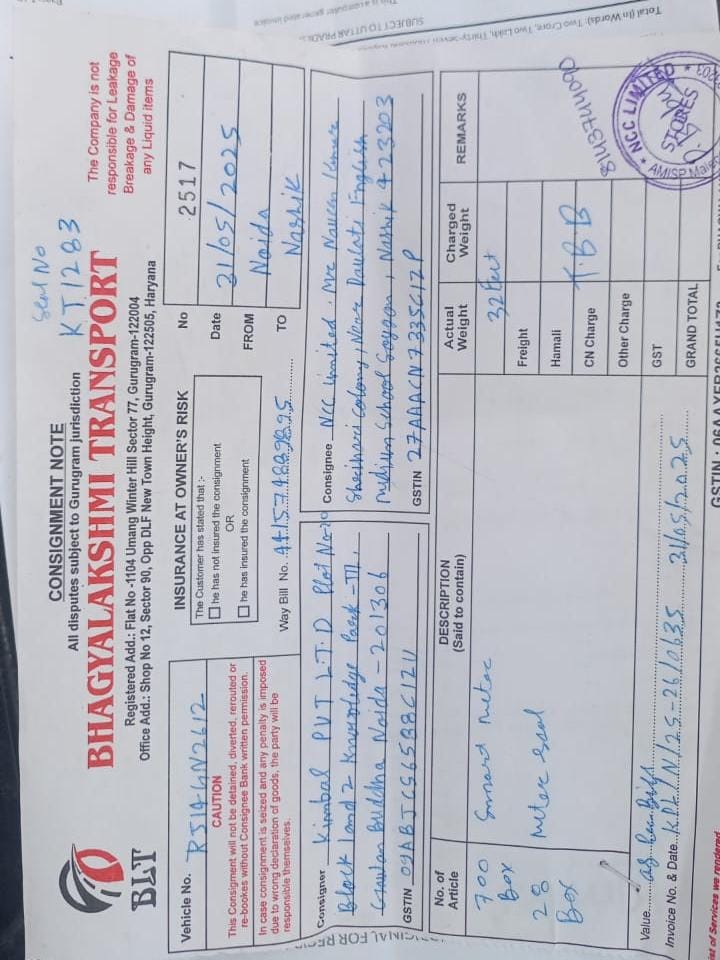 CONSIGNMENT NOTE
All disputes subject to Gurugram jurisdiction
BHAGYALAKSHMI TRANSPORT
Registered Add.: Flat No -1104 Umang Winter Hill Sector 77, Gurugram-122004
Office Add.: Shop No 12, Sector 90, Opp DLF New Town Height, Gurugram-122505, Haryana
BLT
Seal No
KT1283
The Company is not
responsible for Leakage
Breakage & Damage of
any Liquid items
Vehicle No. RJ14GN2612
CAUTION
This Consignment will not be detained, diverted, rerouted or
re-bookes without Consignee Bank written permission.
In case consignment is seized and any penalty is imposed
due to wrong declaration of goods, the party will be
responsible themselves.
INSURANCE AT OWNER'S RISK
The Customer has stated that :-
he has not insured the consignment
OR
he has insured the consignment
Way Bill No.
No 2517
Date 31/05/2025
FROM Noida
TO Nashik
Consigner Kimbal PVT L.T.D Plot No-10
Block 1 and 2 Knowledge Park-III,
Gautam Buddha Noida - 201306
GSTIN
Consignee NCC Limited. Mr. Naveen Kumar
Shrihari Colony, Near Daulati English
Medium School Soygaon, Nashik 423203
GSTIN 27AAACN7335C1ZP
No. of
Article
DESCRIPTION
(Said to contain)
Actual
Weight
Charged
Weight
REMARKS
700
Box
Smart Meter
28
Box
Meter Seal
32 Feet
Freight
Hamali
CN Charge
Other Charge
GST
GRAND TOTAL
T.B.B
8143744090
NCC LIMITED
STORES
AMISP
Value as per Bill
Invoice No. & Date KPL/N/25-26/0635 31/05/2025
SUBJECT TO UTTAR PRADE